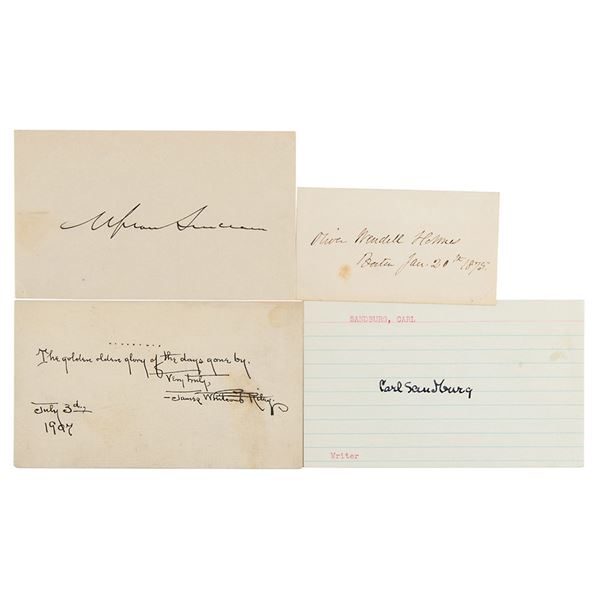 Upton Sinclair
Oliver Wendell Holmes
Boston Jan. 20th 1875.
. . . . . . . . .
The golden olden glory of the days gone by.
Very truly,
James Whitcomb Riley.
July 3d,
1907
SANDBURG, CARL
Carl Sandburg
Writer